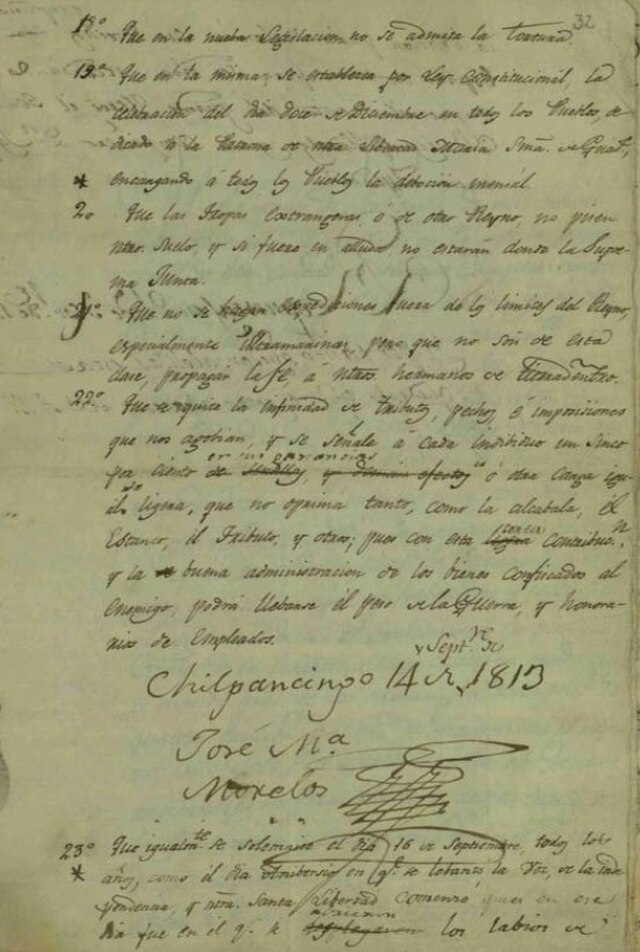 32
18º Que en la nueba Legislacion no se admita la Tortura
19º Que en la misma se establezca por Ley Constitucional, la
celebracion del dia doce de Diciembre en todos los Pueblos, de
dicado a la Patrona de ntra Libertad Maria Sma. de Guadpe,
* encargando á todos los Pueblos la devocion mensal.
20 Que las Tropas extrangeras ó de otro Reyno, no pisen
ntro. Suelo, y si fuere en ayuda, no estarán donde la Supre-
ma Junta.
21º Que no se hagan expediciones fuera de los limites del Reyno,
especialmente Ultramarinas, pero que no son de esta
clase, propagar la fé á ntros hermanos de tierradentro.
22º Que se quite la infinidad de tributos, pechos é imposiciones
que nos agobian, y se señale á cada individuo un cinco
en sus ganancias
por ciento de Semillas, y demás efectos ó otra carga igu
al ligera, que no oprima tanto, como la alcabala, el
Estanco, el Tributo, y otros; pues con esta ligera contribucn.
y la buena administracion de los bienes confiscados al
enemigo, podrá llebarse el peso de la Guerra, y honora-
rios de empleados.
Septre. de
Chilpancingo 14 de 1813
José Ma.
Morelos
23º Que igualmte. se solemnice el dia 16 de Septiembre, todos los
* años, como el dia Anibersario en qe. se lebantó la Voz, de la Inde
pendencia, y ntra. Santa Libertad comenzó, pues en ese
dia fue en el qe. se los labios de